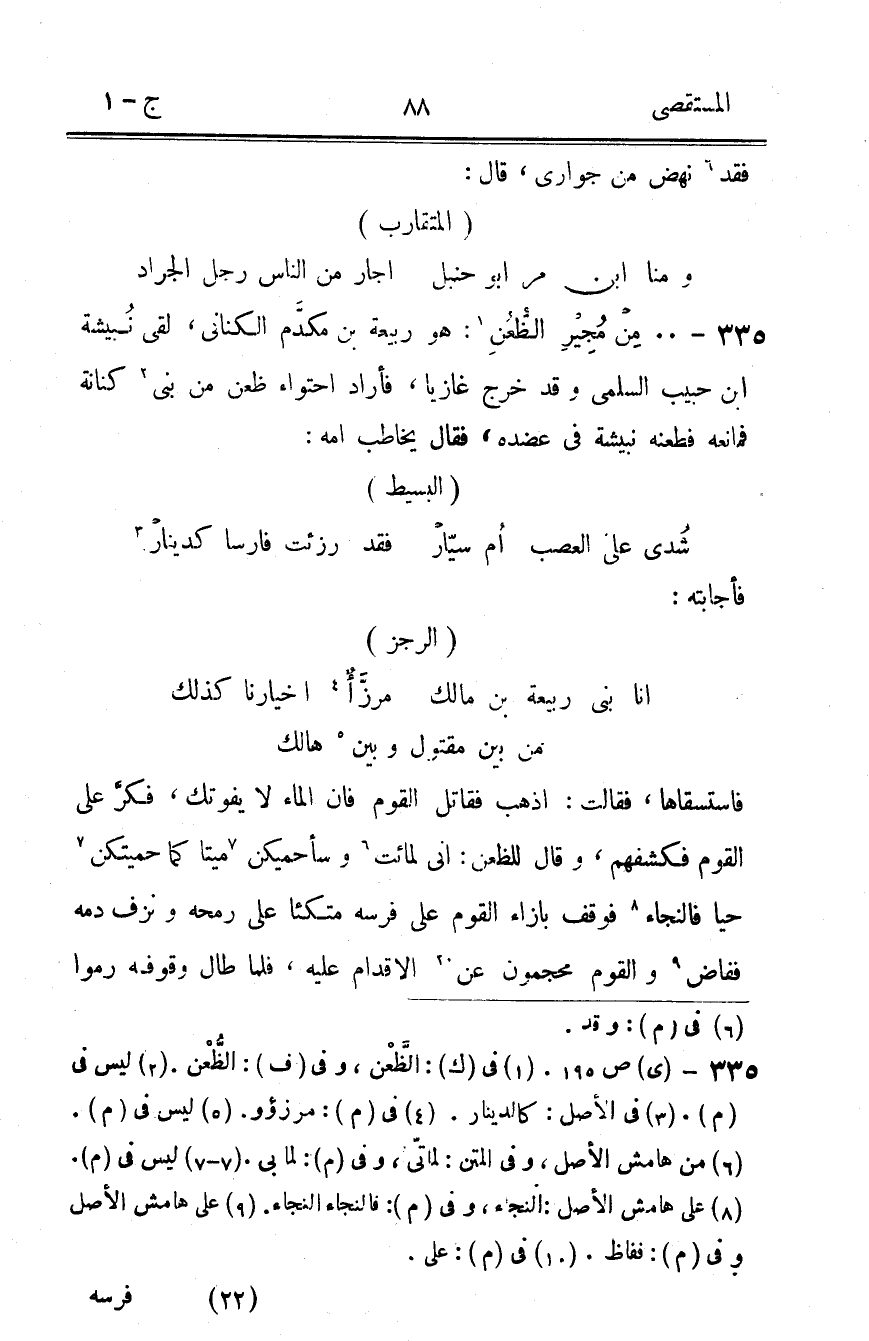 المستقصى ٨٨ ج - ١
فقد٦ نهض من جوارى، قال:
( المتقارب )
و منا ابن مر ابو حنبل اجار من الناس رجل الجراد
٣٣٥ - ٠٠ مِنْ مُجِيْرِ الظُّعُنِ١: هو ربيعة بن مكدَّم الكنانى، لقى نُبيشة
ابن حبيب السلمى و قد خرج غازيا، فأراد احتواء ظعن من بنى٢ كنانة
فمانعه فطعنه نبيشة فى عضده، فقال يخاطب امه:
( البسيط )
شُدى علىّ العصب أم سيّارْ فقد رزئت فارسا كدينارْ٣
فأجابته:
( الرجز )
انا بنى ربيعة بن مالك مرزَّأٌ٤ اخيارنا كذلك
من بين مقتول و بين٥ هالك
فاستسقاها، فقالت: اذهب فقاتل القوم فان الماء لا يفوتك، فكرَّ على
القوم فكشفهم، و قال للظعن: انى لمائت٦ و سأحميكن٧ ميتا كما حميتكن٧
حيا فالنجاء٨ فوقف بازاء القوم على فرسه متكئا على رمحه و نزف دمه
ففاض٩ و القوم محجمون عن١٠ الاقدام عليه، فلما طال وقوفه رموا
(٦) فى (م): و قد.
٣٣٥ - (ى) ص ١٩٥. (١) فى (ك): الظَّعْن، و فى (ف): الظُّعْن. (٢) ليس فى
(م). (٣) فى الأصل: كالدينار. (٤) فى (م): مرزؤو. (٥) ليس فى (م).
(٦) من هامش الأصل، و فى المتن: لماتىّ، و فى (م): لما بى. (٧-٧) ليس فى (م).
(٨) على هامش الأصل: النجاء، و فى (م): فالنجاء النجاء. (٩) على هامش الأصل
و فى (م): ففاظ. (١٠) فى (م): على.
(٢٢) فرسه